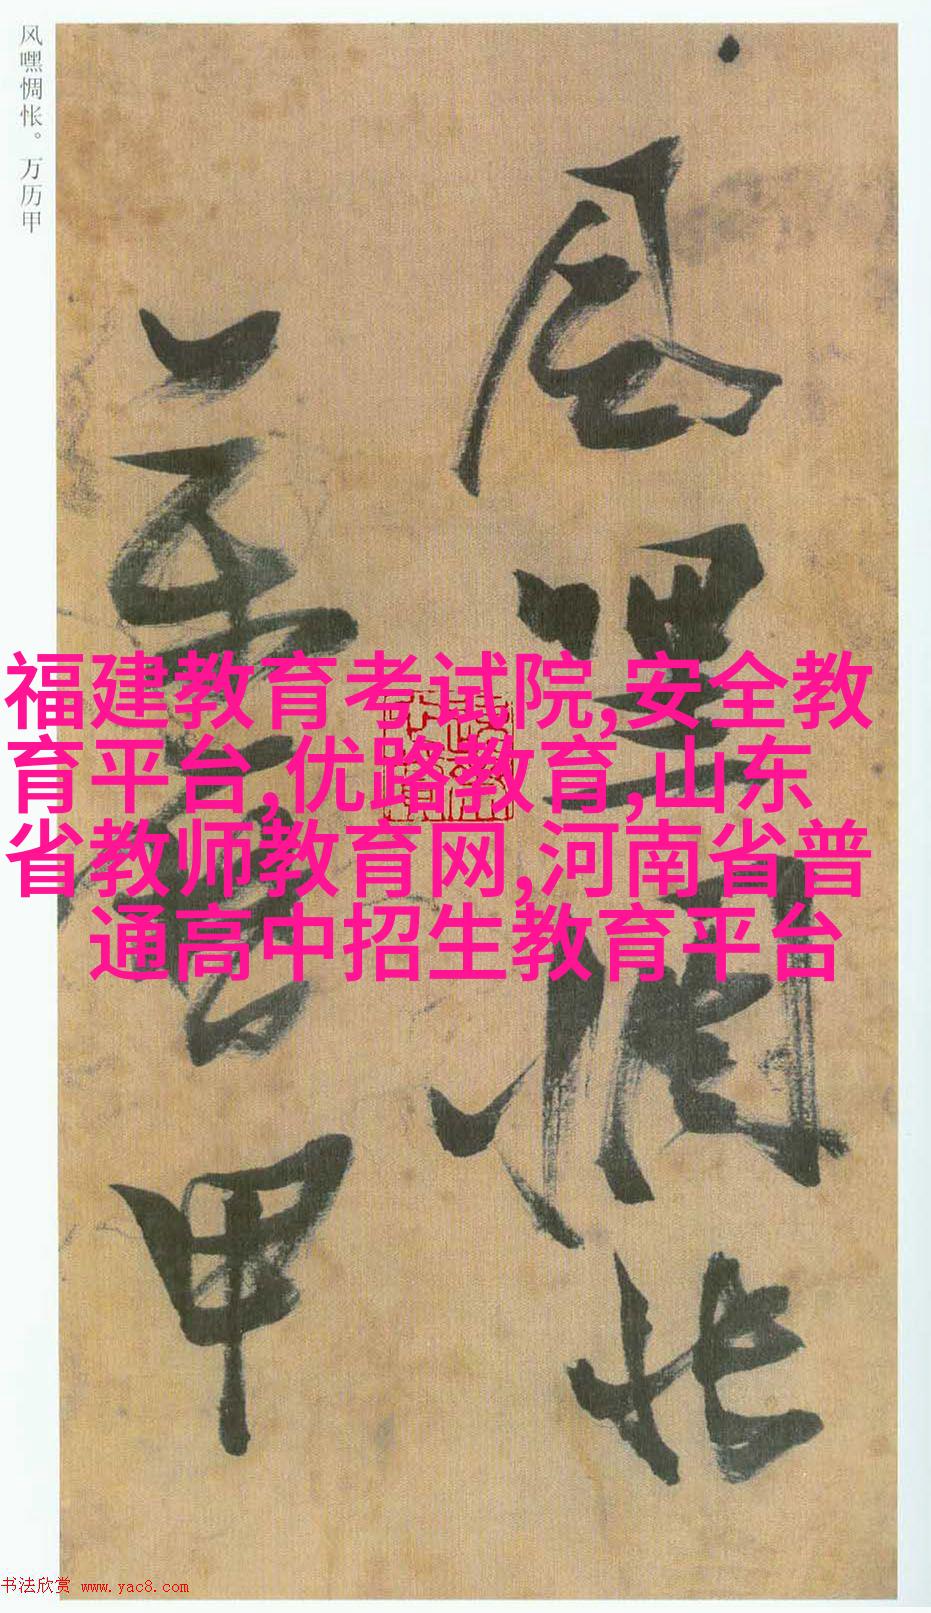 风嘿惆怅。万历甲
风嘿惆怅
万历甲
福建教育考试院,安全教
育平台,优路教育,山东
省教师教育网,河南省普
通高中招生教育平台
书法欣赏 www.yac8.com